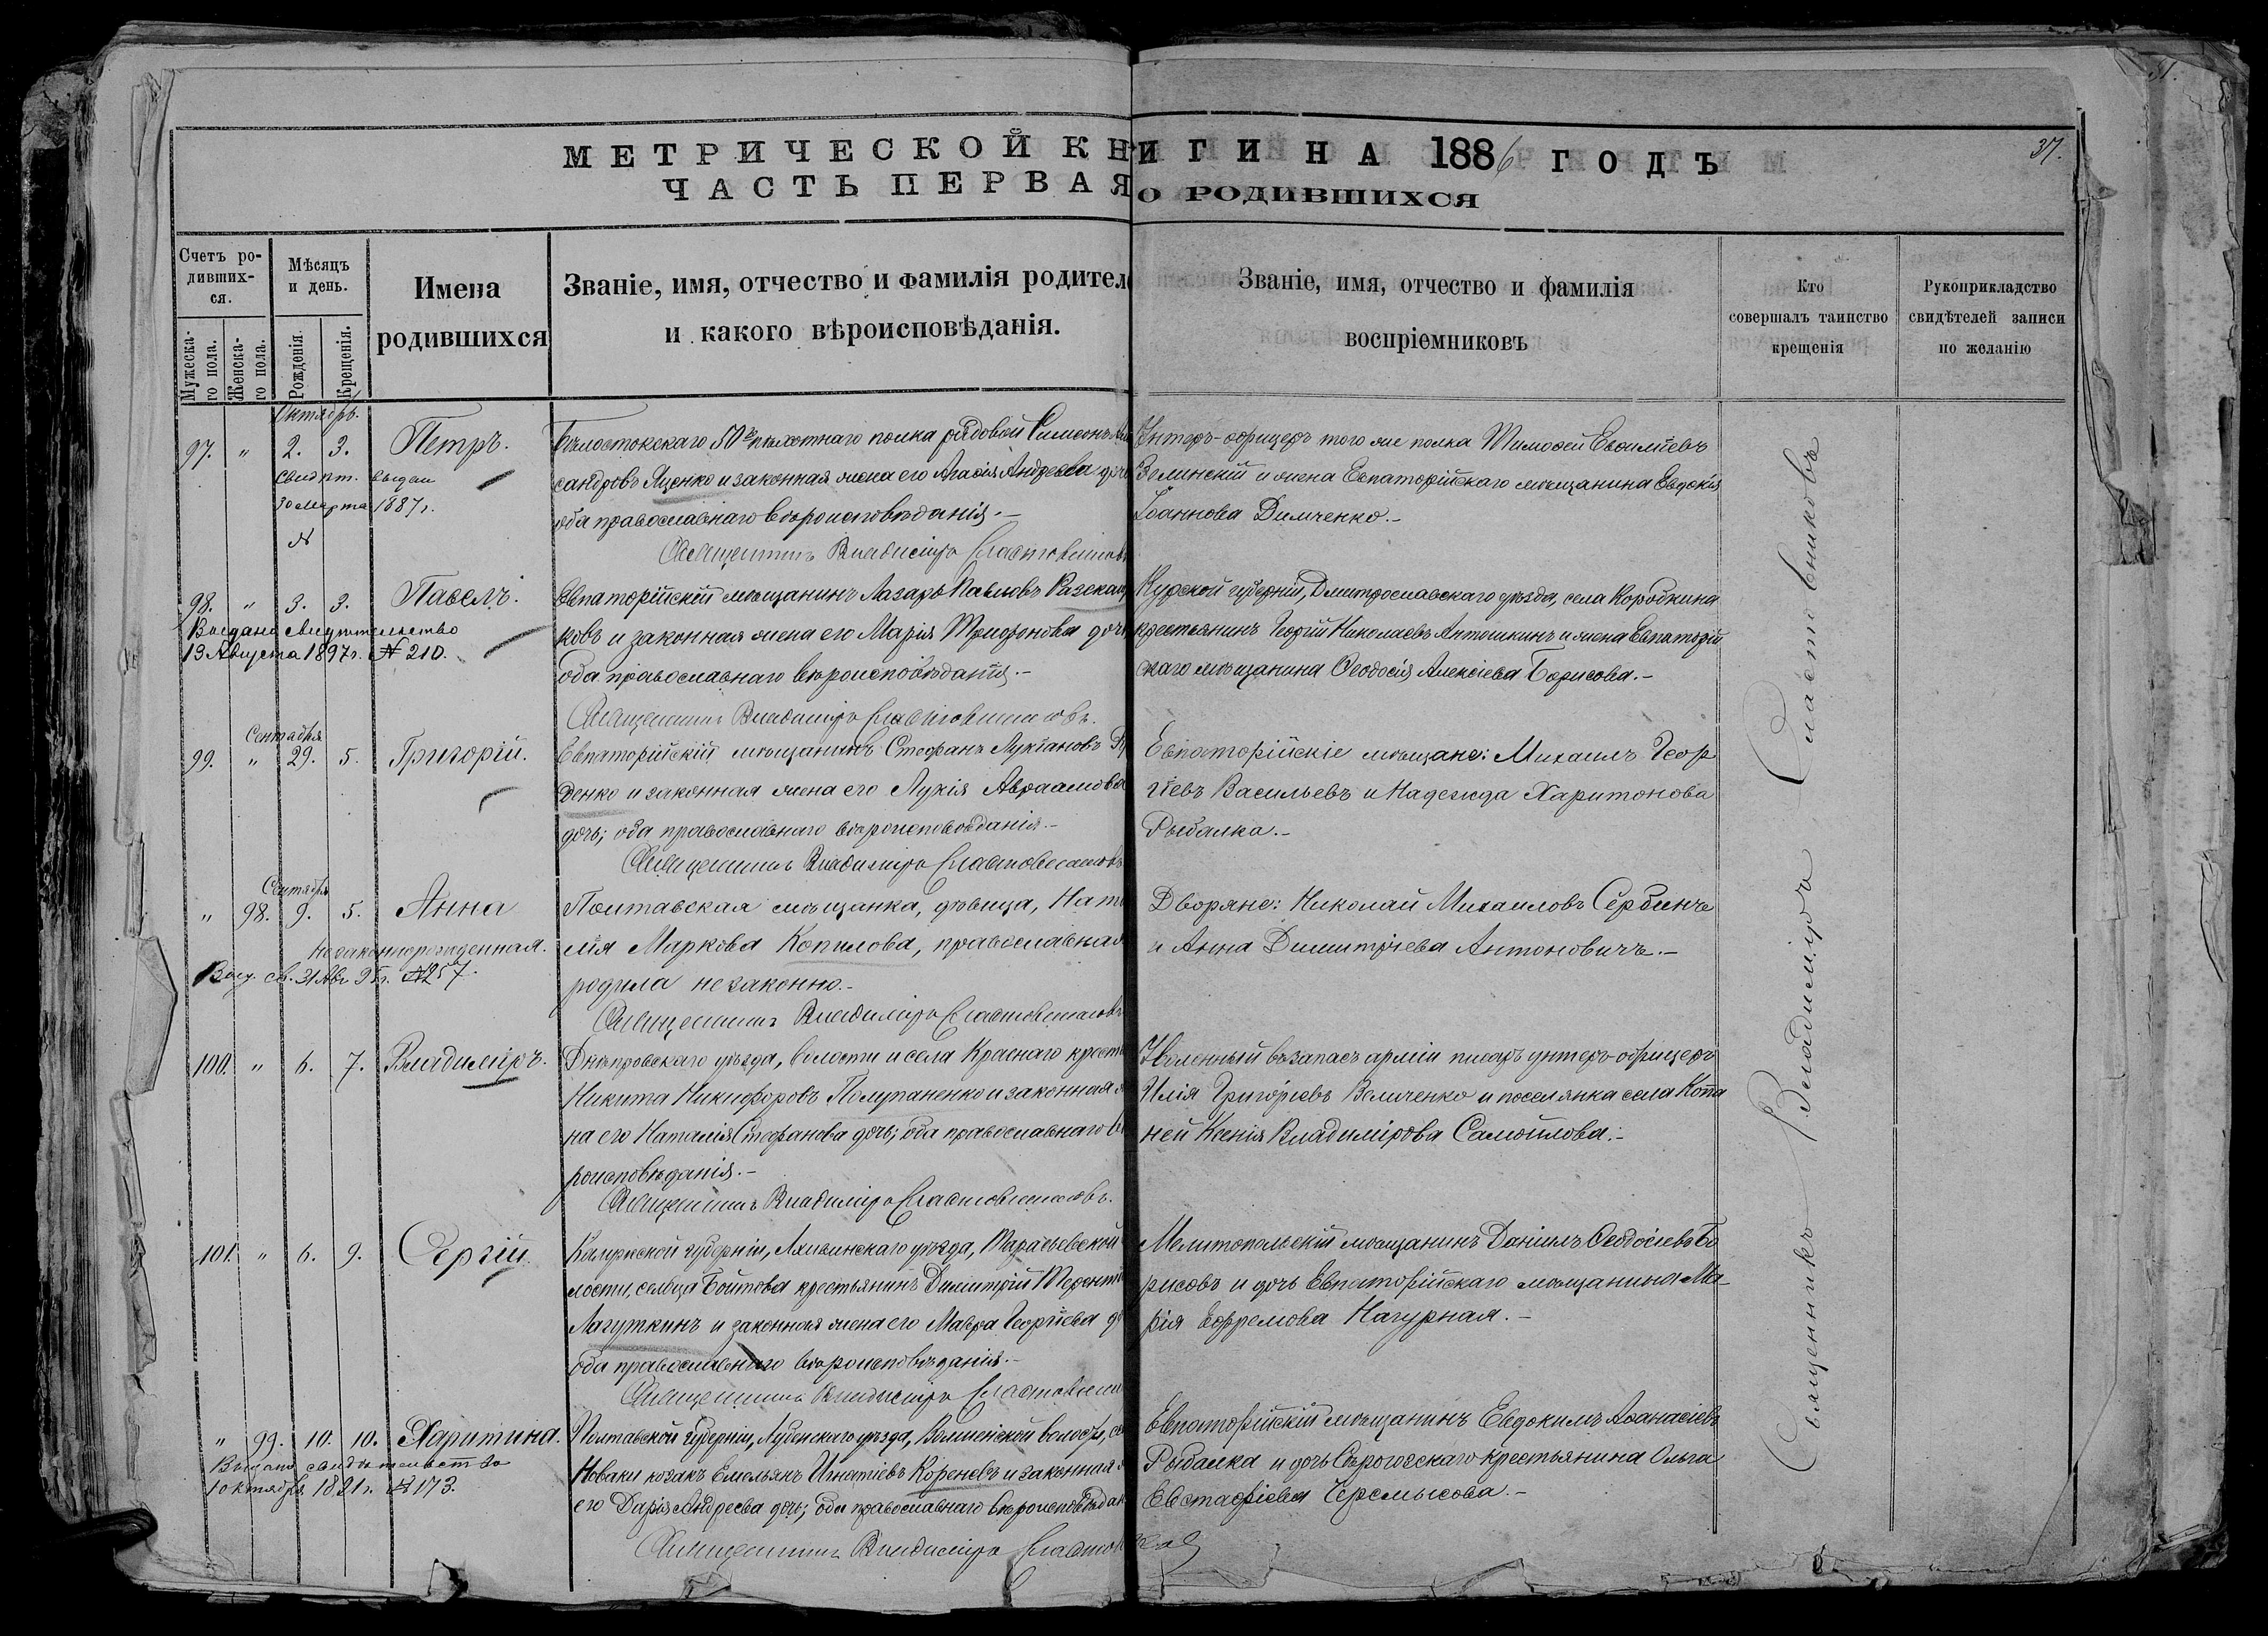 31.
37.
МЕТРИЧЕСКОЙ КНИГИ НА 1886 ГОДЪ
ЧАСТЬ ПЕРВАЯ О РОДИВШИХСЯ
Счетъ ро-
дивших-
ся.
Мужеска-
го пола.
Женска-
го пола.
Мѣсяцъ
и день.
Рожденія.
Крещенія.
Имена
родившихся
Званіе, имя, отчество и фамилія родител
и какого вѣроисповѣданія.
Званіе, имя, отчество и фамилія
воспріемниковъ
Кто
совершалъ таинство
крещенія
Рукоприкладство
свидѣтелей записи
по желанію
Октябрь.
97. " 2. 3. Петръ.
свидѣт. выдан
30 Марта 1887 г.
№
Бѣлостокскаго 50го пѣхотнаго полка рядовой Симеонъ
сандровъ Яценко и законная жена его Агафія Андреева доч
оба православнаго вѣроисповѣданія.-
Священникъ Владиміръ Сластовников
Унтеръ-офицеръ того же полка Тимофей Евфиміевъ
Зелинскій и жена Евпаторійскаго мѣщанина Евдокія
Іоаннова Димченко.-
98. " 3. 3. Павелъ.
Выдано свидѣтельство
13 Августа 1897 г. № 210.
Евпаторійскій мѣщанинъ Лазарь Павловъ Разскащ
ковъ и законная жена его Марія Трифонова дочь
оба православнаго вѣроисповѣданія.-
Священникъ Владиміръ Сластовниковъ.
Курской губерніи, Дмитрославскаго уѣзда, села Коробкина
крестьянинъ Георгій Николаевъ Антошкинъ и жена Евпаторій
скаго мѣщанина Ѳеодосія Алексіева Борисова.-
Сентября
99. " 29. 5. Григорій.
Евпаторійскій мѣщанинъ Стефанъ Лукіановъ
денко и законная жена его Лукія Авраамова
дочь; оба православнаго вѣроисповѣданія.-
Священникъ Владиміръ Сластовниковъ
Евпаторійскіе мѣщане: Михаилъ Геор
гіевъ Васильевъ и Надежда Харитонова
Рыбалка.-
Сентября
" 98. 9. 5. Анна
незаконнорожденная.
Выд. св. 31 Авг. 95 г. № 257.
Полтавская мѣщанка, дѣвица, Ната
лія Маркова Копилова, православная
родила незаконно.-
Священникъ Владиміръ Сластовниковъ
Дворяне: Николай Михаиловъ Сербинъ
и Анна Димитріева Антоновичъ.-
100. " 6. 7. Владиміръ.
Днѣпровскаго уѣзда, волости и села Краснаго крест
Никита Никифоровъ Полупаненко и законная ж
на его Наталія Стефанова дочь; оба православнаго вѣ
роисповѣданія.-
Священникъ Владиміръ Сластовниковъ.
Уволенный въ запасъ арміи писарь унтеръ-офицеръ
Илія Григоріевъ Величенко и поселянка села Копа
ней Ксенія Владимірова Самойлова.-
101. " 6. 9. Сергій.
Калужской губерніи, Лихвинскаго уѣзда, Тарасьевской
лости, сельца Бойтова крестьянинъ Димитрій Терент
Лагуткинъ и законная жена его Мавра Георгіева до
оба православнаго вѣроисповѣданія.-
Священникъ Владиміръ Сластовник
Мелитопольскій мѣщанинъ Даніилъ Ѳеодосіевъ Бо
рисовъ и дочь Евпаторійскаго мѣщанина Ма-
рія Ефремова Нагурная.-
" 99. 10. 10. Харитина.
Выдано свидѣтельство
1 октября 1891 г. № 173.
Полтавской губерніи, Лубенскаго уѣзда, волости, се
Новаки козакъ Емельянъ Игнатіевъ Кореневъ и законная ж
его Дарія Андреева дочь; оба православнаго вѣроисповѣдан
Священникъ Владиміръ Сластовниковъ
Евпаторійскій мѣщанинъ Евдокимъ Аѳанасіевъ
Рыбалка и дочь Сѣрогозскаго крестьянина Ольга
Евстафіева Черемысова.-
Священникъ Владиміръ Сластовниковъ